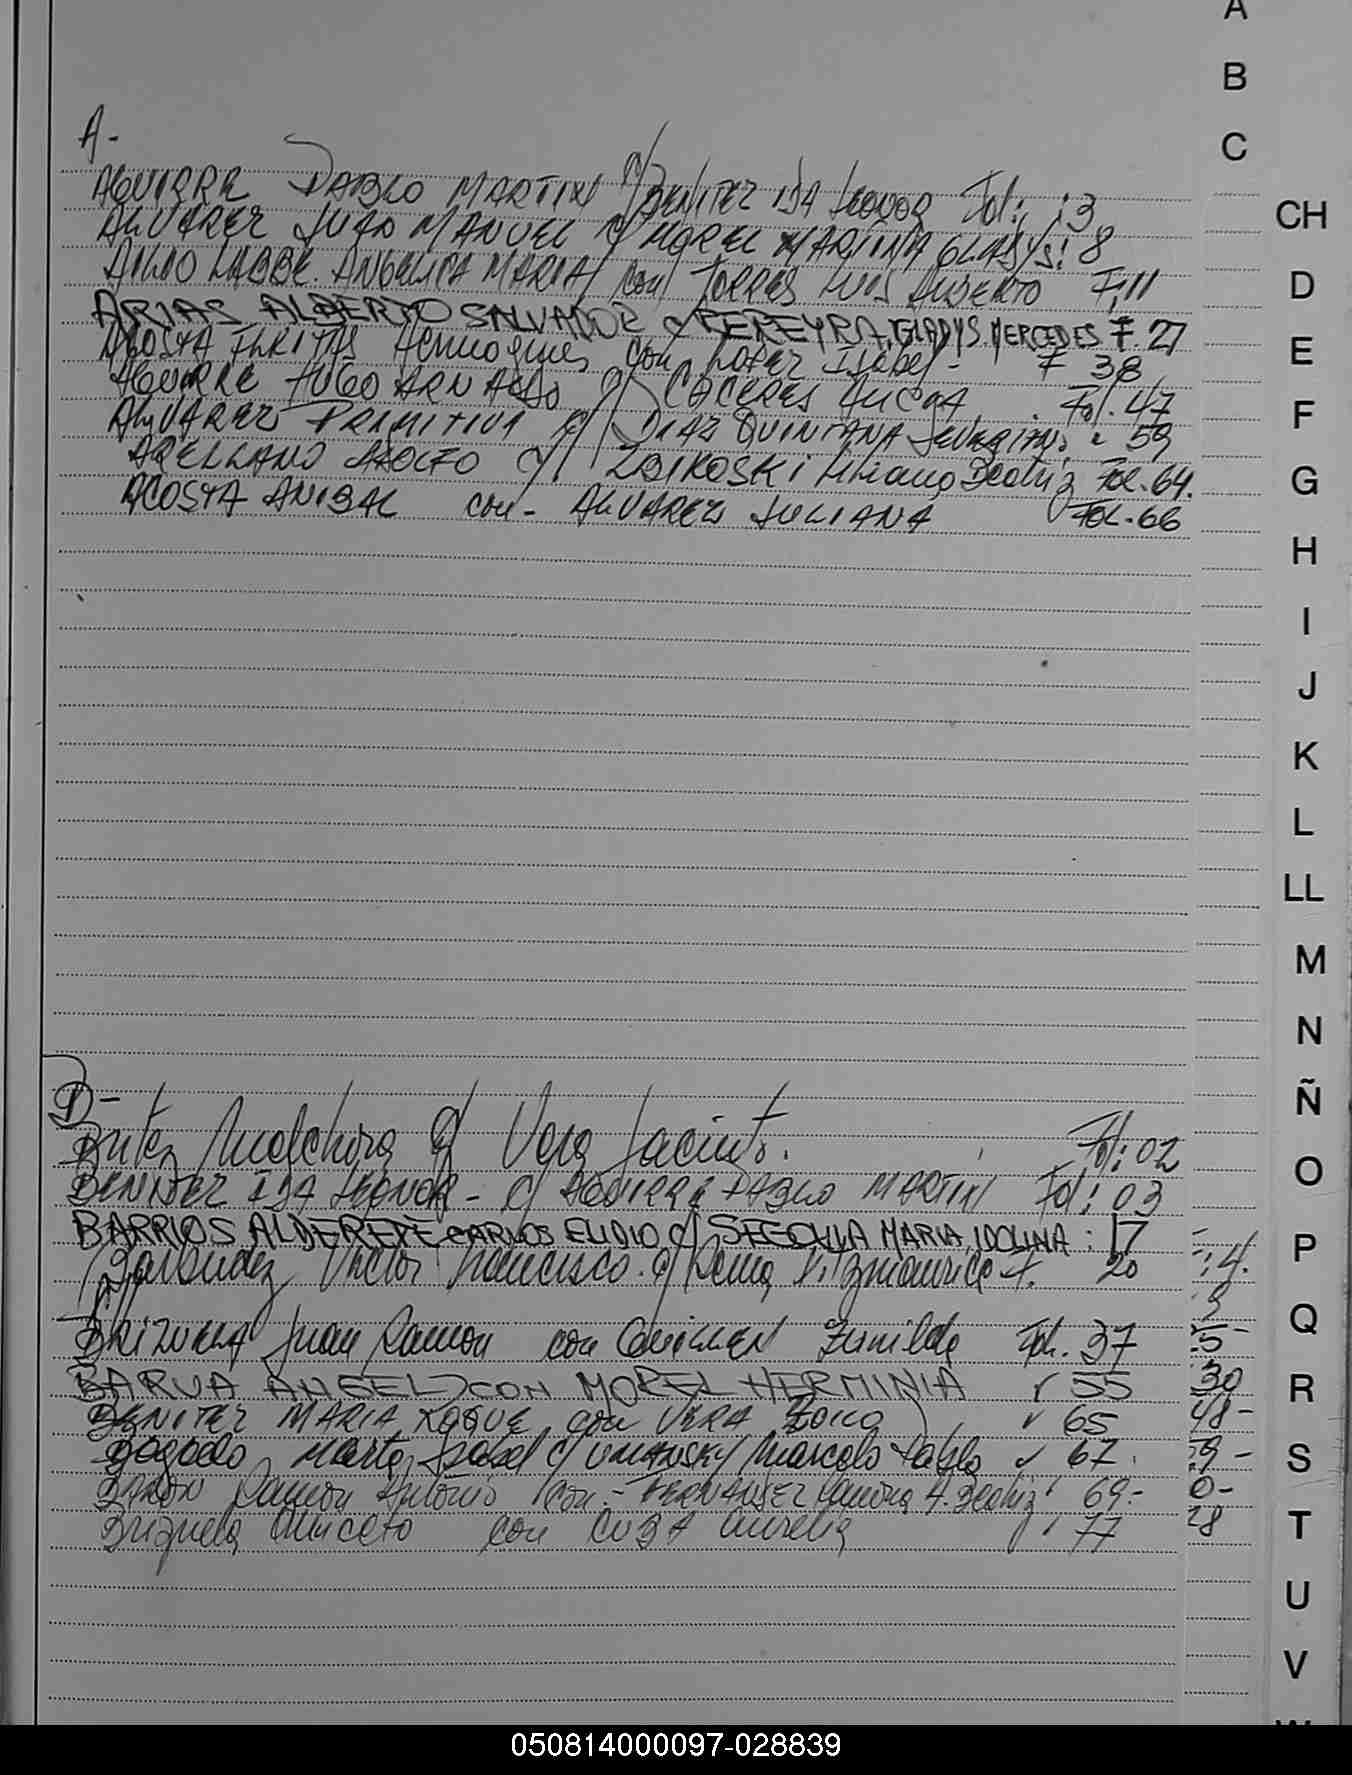 A-
AGUIRRE PABLO MARTIN c/ BENITEZ IDA LEONOR Fol: :3
ALVAREZ JUAN MANUEL c/ MOREL MARINA GLADYS: 8
ANGELICA MARIA con TORRES LUIS ALBERTO F,11
ARIAS ALBERTO SALVADOR c/ PEREYRA, GLADYS MERCEDES F. 27
ACOSTA con LOPEZ ISABEL - F 38
AGUIRRE HUGO ARNALDO c/ CACERES Fol. 47
ALVAREZ PRIMITIVA c/ DIAZ QUINTANA " 59
ARELLANO ADOLFO c/ ZDIKOSKI Liliana Beatriz Fol. 64.
ACOSTA ANIBAL con- ALVAREZ JULIANA FOL. 66
B-
Britez Melchora c/ Vera Jacinto. Fol: 02
BENITEZ IDA LEONOR - c/ AGUIRRE PABLO MARTIN Fol: 03
BARRIOS ALDERETE CARLOS ELIDIO c/ SEGOVIA MARIA IDOLINA : 17
Victor Francisco. c/ F. 20
BRIZUELA Juan Ramon con GUILLEN Zunilda Fol. 37
BARUA ANGEL CON MOREL HERMINIA 55
BENITEZ MARIA ROQUE con VERA 65
Bogado Marta Isabel c/ UMANSKY Marcelo Pablo 67.
Ramon Antonio con.- FERNANDEZ Ramona A. Beatriz 69.-
Brizuela Aniceto con CUBA Aurelia 77
:4.
3
5-
30
48-
59-
0-
28
A
B
C
CH
D
E
F
G
H
I
J
K
L
LL
M
N
Ñ
O
P
Q
R
S
T
U
V
050814000097-028839